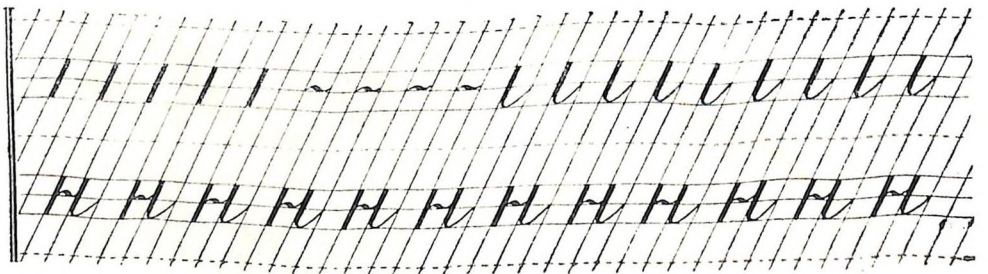 н н н н н н н н н н н н